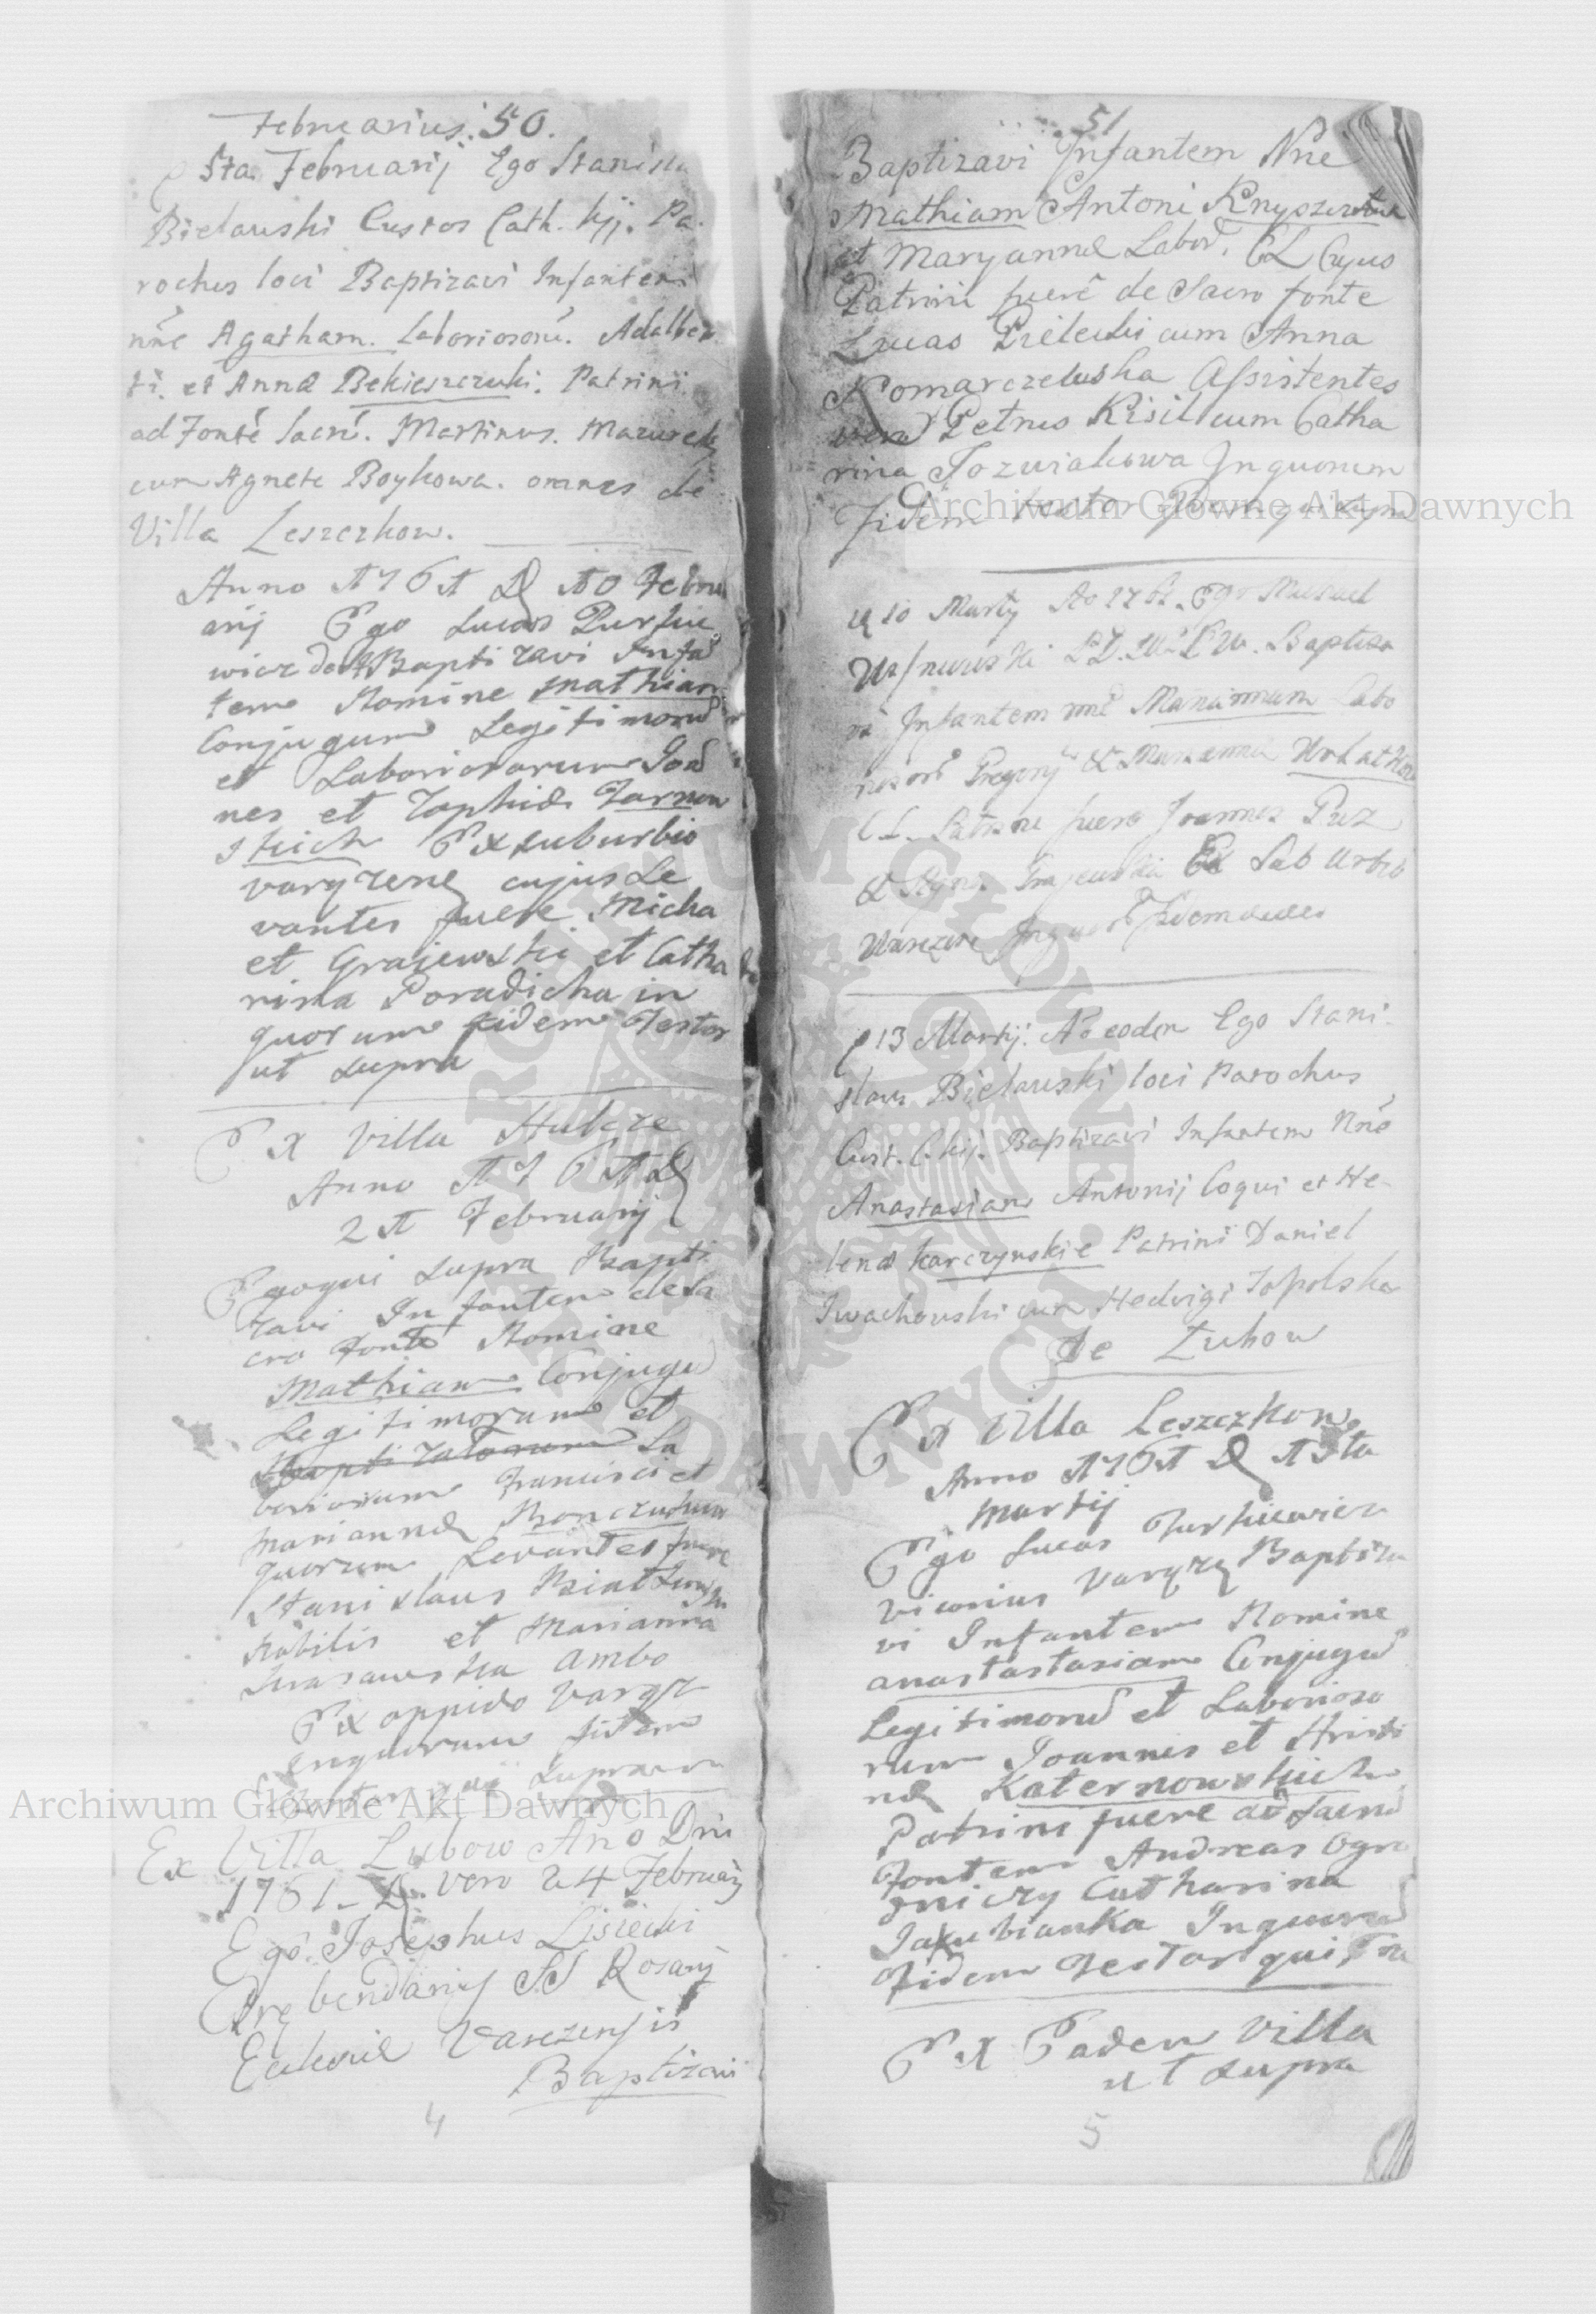 Februarius. 50.
5ta Februarij Ego Stanisla
Bielawski Custos Cath. Kij. Pa-
rochus loci Baptizavi Infantem
nñe Agatham. Laboriosorũ. Adalber
ti. et Annæ Bekieszczuki. Patrini
ad Fontẽ Sacrũ. Martinus. Mazurek
cum Agnete Boykowa. omnes de
Villa Leszczkow.
Anno 1761 D 10 Febru
arij Ego Lucas
Baptizavi Infã
tem Nomine Mathiam
Conjugum Legitimorũ
et Laboriosorum Joã
nes et Zophiæ Tarnow
skich Ex suburbio
Varęzene cujus Le
vantes fuere Micha
el Grajewski et Catha
rina Poradicha in
quorum fidem Testor
ut supra
Ex Villa Hulcze
Anno 1761 D
21 Februarij
Ego qui supra Bapti
zavi Infantem de Sa
cro fonte Nomine
Mathiam Conjugũ
Legitimorum et
Baptizatorum La
boriosorum Francisci et
Mariannæ
quorum Levantes fuere
Stanislaus
Nobilis et Marianna
Ambo
Ex oppido Varęz
Inquorum fidem
Testor qui supra
Ex Villa Lubow Ano Dni
1761- D. vero 24 February
Ego Josephus Lisiecki
Prębendariy SS Rosarij
Ecclesiæ Varezensis
Baptizavi
4
51
Baptizavi Infantem Nñe
Mathiam Antoni
et Maryannæ Labor. CL Cujus
Patrini fuerẽ de Sacro fonte
Lucas cum Anna
Komarczewska Assistentes
vero Petrus Kisil cum Catha
rina Jozwiakowa Inquorum
Fidem testor
10 Martij Ao 1761. Ego Michael
Baptiza
vi Infantem nñe Mariannam Labo
riosorũ Gregorij & Marianna
CL. Patrini fuere Joannes
& Ex Sub urbio
Warezene Inquorũ fidem
13 Martij. Ao eodem Ego Stani-
slaus Bielawski loci Parochus
Cust. C. Kij. Baptizavi Infantem Nñe
Anastasiam Antonij Coqui et He-
lenæ Karczynskie Patrini Daniel
Iwachowski cum Hedvigi Topolska
de Luhow
Ex Villa Leszczkow
Anno 1761 D 15ta
Martij
Ego Lucas Turkiewicz
Vicarius Varęzę Baptiza
vi Infantem Nomine
anastastasiam Conjugũ
Legitimorũ et Laborioso
rum Joannes et Kristi
næ Katernowskich
Patrini fuere ad sacrũ
Fontem Andreas Ogro
dniczy Catharina
Jakubianka Inquorũ
Fidem Testor qui
Ex Eadem Villa
ut supra
5
Archiwum Główne Akt Dawnych
Archiwum Główne Akt Dawnych
ARCHIWUM GŁÓWNE AKT DAWNYCH